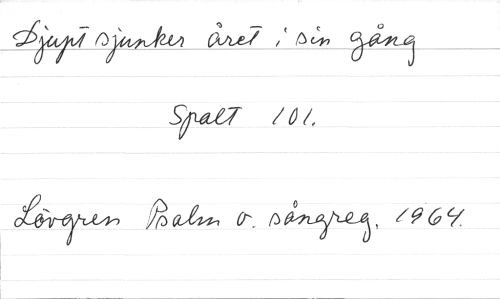 Djupt sjunker året i sin gång
Spalt 101.
Lövgren Psalm o. sångreg. 1964.